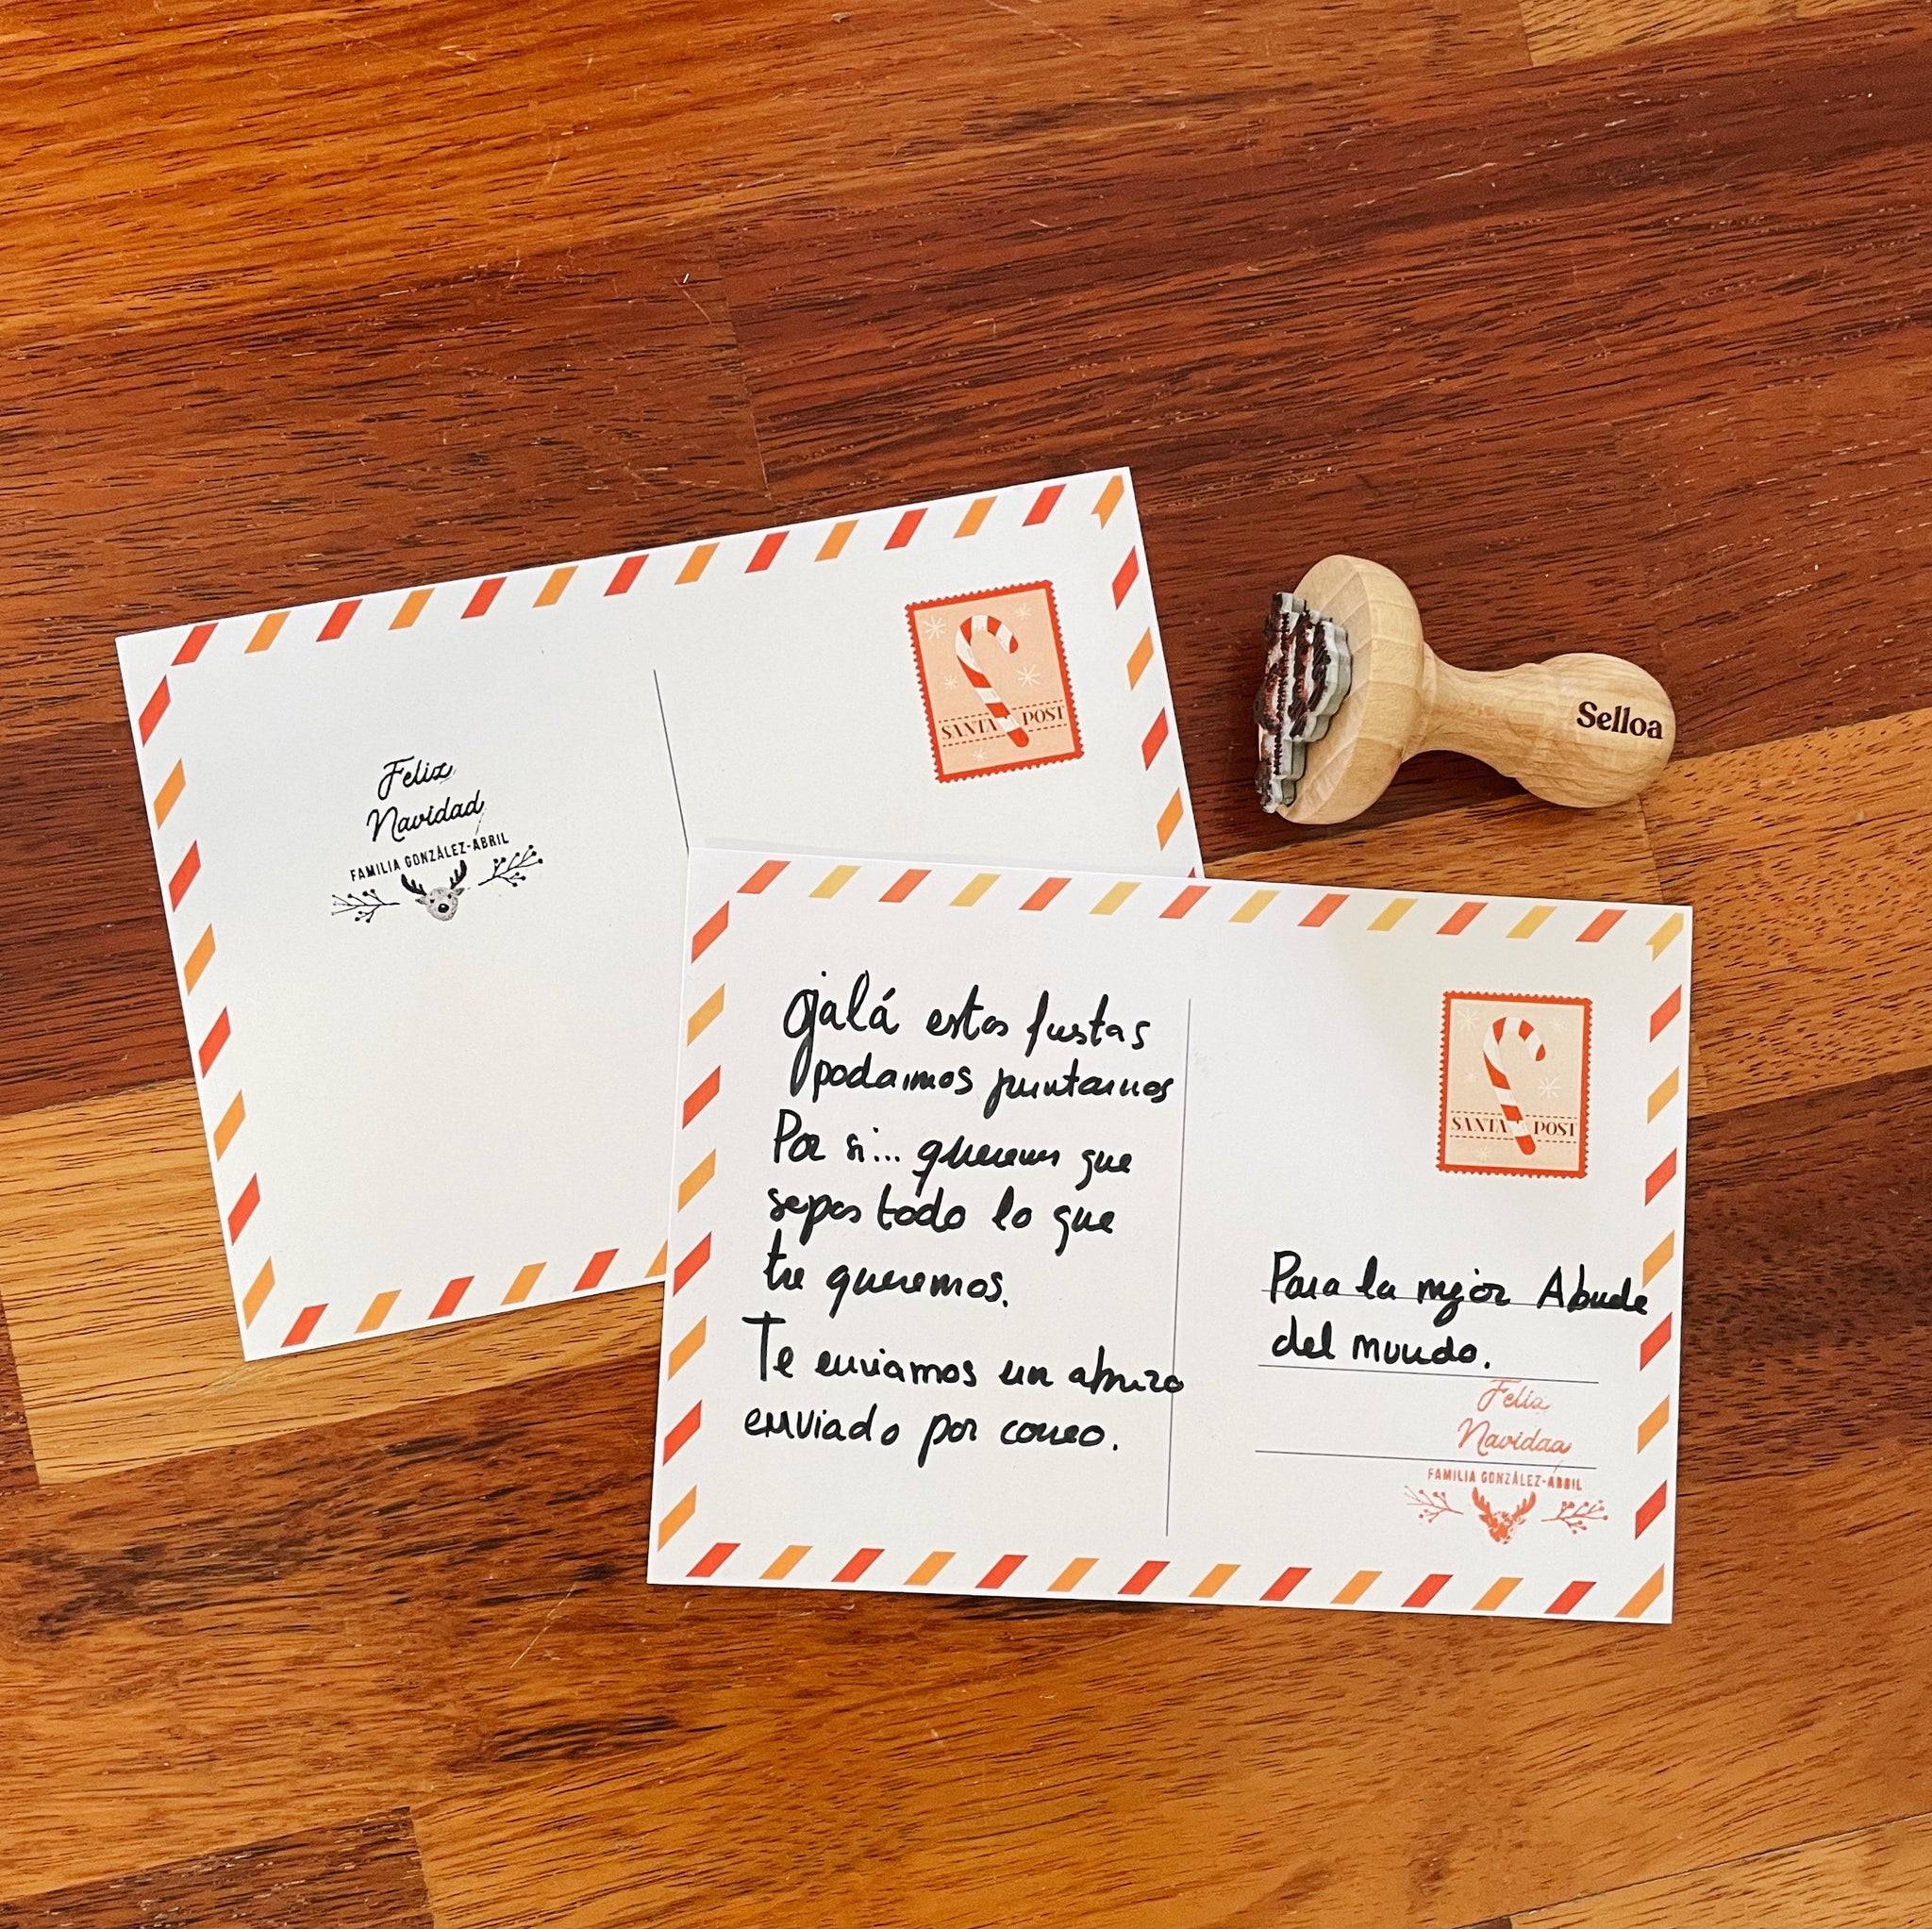 Feliz
Navidad
FAMILIA GONZÁLEZ-ABRIL
SANTA POST
Selloa
Ojalá estas fiestas
podamos juntarnos
Por si... queremos que
sepas todo lo que
te queremos.
Te enviamos un abrazo
enviado por correo.
SANTA POST
Para la mejor Abuela
del mundo.
Feliz
Navidad
FAMILIA GONZÁLEZ-ABRIL